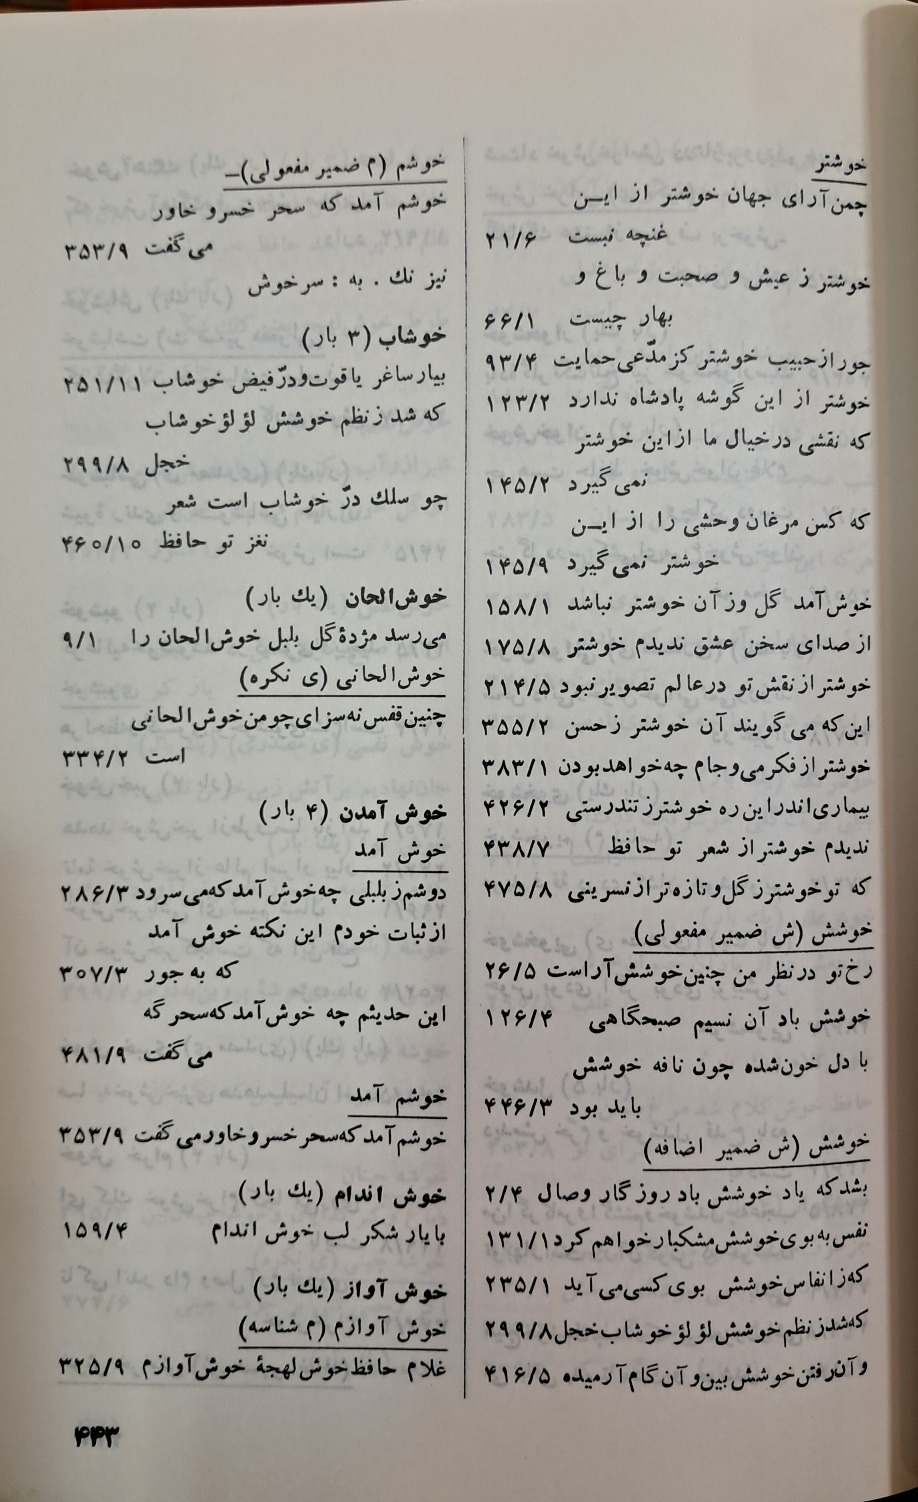 خوشتر
چمن‌آرای جهان خوشتر از ایــن
غنچه نبست ۲۱/۶
خوشتر ز عیش و صحبت و باغ و
بهار چیست ۶۶/۱
جور از حبیب خوشتر کز مدّعی حمایت ۹۳/۴
خوشتر از این گوشه پادشاه ندارد ۱۲۳/۲
که نقشی درخیال ما ازاین خوشتر
نمی‌گیرد ۱۴۵/۲
که کس مرغان وحشی را از ایــن
خوشتر نمی‌گیرد ۱۴۵/۹
خوش‌آمد گل وز آن خوشتر نباشد ۱۵۸/۱
از صدای سخن عشق ندیدم خوشتر ۱۷۵/۸
خوشتر از نقش تو درعالم تصویر نبود ۲۱۴/۵
این‌که می‌گویند آن خوشتر ز حسن ۳۵۵/۲
خوشتر از فکر می و جام چه خواهد بودن ۳۸۳/۱
بیماری اندر این ره خوشتر ز تندرستی ۴۲۶/۲
ندیدم خوشتر از شعر تو حافظ ۴۳۸/۷
که تو خوشتر ز گل و تازه‌تر از نسرینی ۴۷۵/۸
خوشش (ش ضمیر مفعولی)
رخ تو در نظر من چنین خوشش آراست ۲۶/۵
خوشش باد آن نسیم صبحگاهی ۱۲۶/۴
با دل خون‌شده چون نافه خوشش
باید بود ۴۴۶/۳
خوشش (ش ضمیر اضافه)
بشد که یاد خوشش باد روزگار وصال ۲/۴
نفس به بوی خوشش مشکبار خواهم کرد ۱۳۱/۱
که ز انفاس خوشش بوی کسی می‌آید ۲۳۵/۱
که شد ز نظم خوشش لؤلؤ خوشاب خجل ۲۹۹/۸
و آن رفتن خوشش بین و آن گام آرمیده ۴۱۶/۵
خوشم (م ضمیر مفعولی)–
خوشم آمد که سحر خسرو خاور
می‌گفت ۳۵۳/۹
نیز نك . به : سرخوش
خوشاب (۳ بار)
بیار ساغر یاقوت و درّ فیض خوشاب ۲۵۱/۱۱
که شد ز نظم خوشش لؤلؤ خوشاب
خجل ۲۹۹/۸
چو سلك درّ خوشاب است شعر
نغز تو حافظ ۴۶۰/۱۰
خوش‌الحان (یك بار)
می‌رسد مژدهٔ گل بلبل خوش‌الحان را ۹/۱
خوش‌الحانی (ی نکره)
چنین قفس نه سزای چو من خوش‌الحانی
است ۳۳۴/۲
خوش آمدن (۴ بار)
خوش آمد
دوشم ز بلبلی چه خوش آمد که می‌سرود ۲۸۶/۳
از ثبات خودم این نکته خوش آمد
که به جور ۳۰۷/۳
این حدیثم چه خوش آمد که سحرگه
می‌گفت ۴۸۱/۹
خوشم آمد
خوشم آمد که سحر خسرو خاور می‌گفت ۳۵۳/۹
خوش اندام (یك بار)
با یار شکر لب خوش اندام ۱۵۹/۴
خوش آواز (یك بار)
خوش آوازم (م شناسه)
غلام حافظ خوش لهجهٔ خوش‌آوازم ۳۲۵/۹
۴۴۳